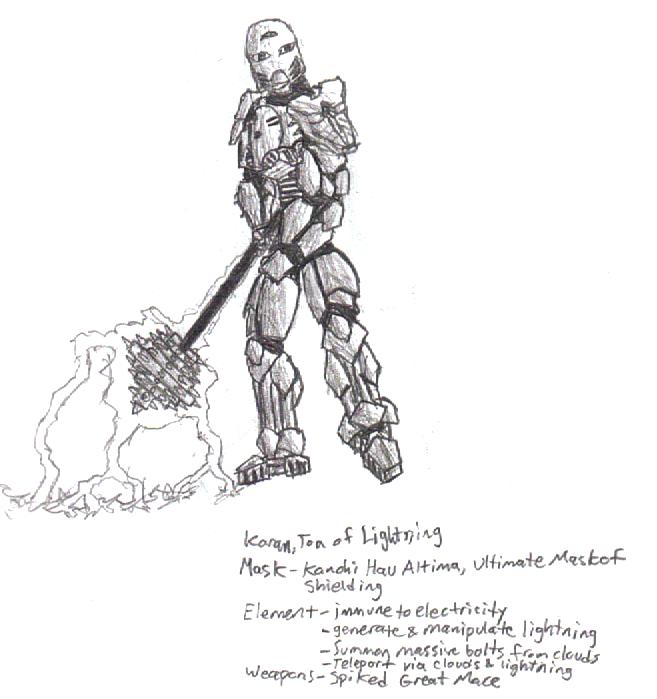 Koran, Toa of Lightning
Mask - Kanohi Hau Altima, Ultimate Mask of
Shielding
Element - immune to electricity
- generate & manipulate lightning
- Summon massive bolts from clouds
- Teleport via clouds & lightning
Weapons - Spiked Great Mace